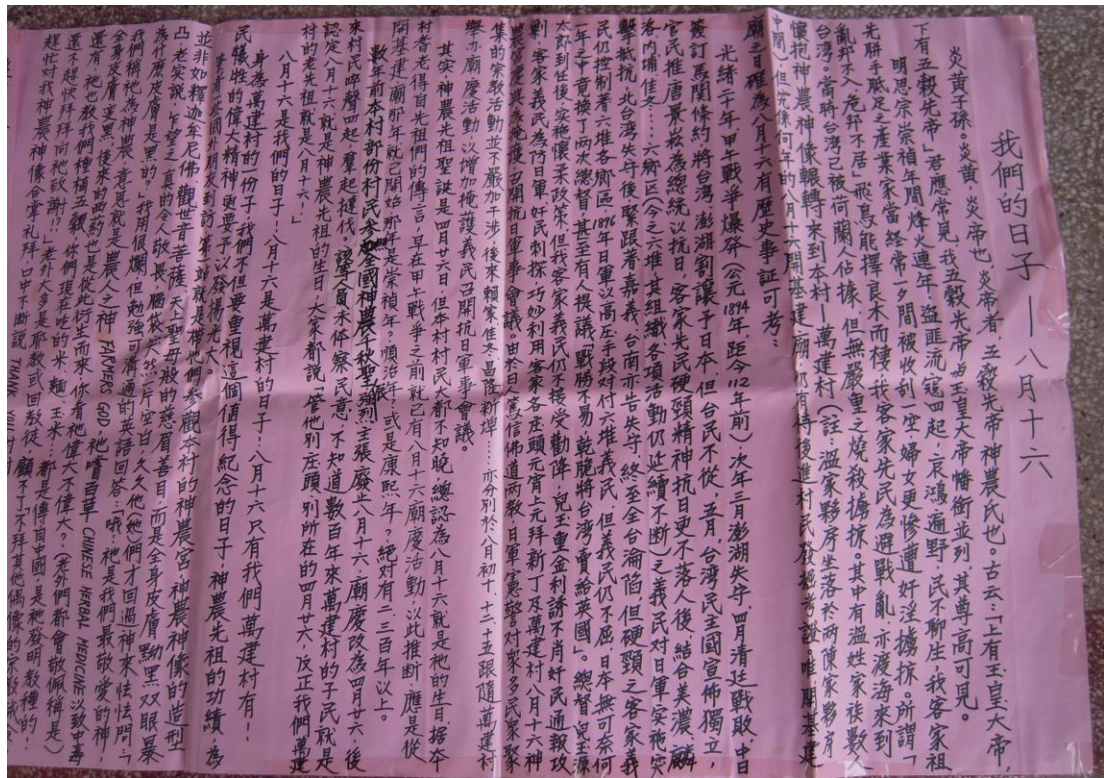 我們的日子——八月十六
炎黃子孫。炎黃，炎帝也，炎帝者，五穀先帝神農氏也。古云：「上有玉皇大帝，
下有五穀先帝」君應常見，我五穀先帝與玉皇大帝幡銜並列，其尊高可見。
明思宗崇禎年間，烽火連年，盜匪流寇四起，哀鴻遍野，民不聊生，我客家祖
先胼手胝足之產業家當，經常一夕間被收刮一空，婦女更慘遭奸淫擄掠。所謂「
亂邦不入，危邦不居」飛鳥能擇良木而棲，我客家先民為避戰亂，亦渡海來到
台灣。當時台灣已被荷蘭人佔據，但無嚴重之燒殺擄掠。其中有溫姓家族數人
懷抱神農神像輾轉來到本村——萬建村（註：溫家夥房坐落於兩陳家夥房
中間）但無
廟之日確為八月十六有歷史事証可考：
光緒二十年甲午戰爭爆發（公元1894年，距今112年前），次年三月澎湖失守，四月清廷戰敗，中日
簽訂馬關條約，將台灣、澎湖割讓予日本，但台民不從，五月，台灣民主國宣佈獨立，
官民推唐景崧為總統以抗日，客家先民硬頸精神抗日更不落人後，結合美濃、麟
洛、內埔、佳冬……六鄉區（今之六堆，其組織各項活動仍延續不斷）之義民對日軍實施突
擊、抵抗，北台灣失守後，緊跟著嘉義、台南亦告失守，終至全台淪陷，但硬頸之客家義
民仍控制著六堆各鄉區，1896年日軍以高压手段對付六堆義民，但義民仍不屈，日本無可奈何
一年之中竟換了兩次總督，甚至有人提議「戰勝不易，乾脆將台灣賣給英國」。總督兒玉源
太郎到任後，實施懷柔政策，但我客家義民仍不接受勸降，兒玉重金利誘不肖奸民通報攻
剿，客家義民為防日軍、奸民刺探，巧妙利用客家各庄頭元宵上元拜新丁及萬建村八月十六神
農廟慶典為掩護，召開抗日軍事會議。由於日人篤信佛道兩教，日軍憲警對眾多民眾聚
集的宗教活動並不嚴加干涉，後來賴家佳冬、昌隆、新埤……亦分別於八月初十、十二、十五跟隨萬建村
舉办廟慶活動，以增加掩護義民召開抗日軍事會議。
其实，神農先祖聖誕是四月廿六日，但本村村民大都不知曉，總認為八月十六就是祂的生日，據本
村耆老得自先祖們的傳言，早在甲午戰爭之前就已有八月十六廟慶活動，以此推斷，應是從
開基建廟那年就已開始，那年是崇禎年？順治年？或是康熙年？絕對有二三百年以上。
數年前本村部份村民參加全國神農千秋聖誕，強烈主張廢止八月十六，廟慶改為四月廿六，後
來村民啐聲四起，羣起撻伐，認官員未体察民意，不知道數百年來萬建村的子民就是
認定八月十六就是神農先祖的生日，大家都說，管他別庄頭別所在的四月廿六，反正我們萬建
村的老先祖就是八月十六！」
八月十六是我們的日子！八月十六是萬建村的日子！八月十六只有我們萬建村有！
身為萬建村的一份子，我們不但要重視這個值得紀念的日子，神農先祖的功績，為
民犧牲的偉大精神更要予以發揚光大。
每當有國外朋友到訪，第一站就是帶他們參觀本村的神農宮，神農神像的造型
並非如釋迦牟尼佛、觀世音菩薩、天上聖母般的慈眉善目，而是全身皮膚黝黑，双眼暴
凸，老实說，乍望之，真的令人敬畏，腦袋一片空白，久久他她們才回過神來，怯怯問：「
為什麼皮膚是黑的？」我用很爛但勉強可溝通的英語回答：「哦！祂是我們最敬愛的神，
我們稱祂為神農，意思就是農人之神FARMERS GOD，祂嚐百草CHINESE HERBAL MEDICINE以致中毒
全身皮膚變黑，後來的西药也是從此衍生而來，你看祂偉大不偉大？（老外們都會敬佩稱是）
還有，祂也教我們種植五穀，你們現在吃的米、麵、玉米……都是傳自中國，是祂發明教種的，
還不趕快拜拜向祂致謝！？」老外大多是耶教或回教徒，顧不了不拜其他偶像的宗教
趕忙對我神農神像合掌礼拜，口中不斷說：THANK YOU